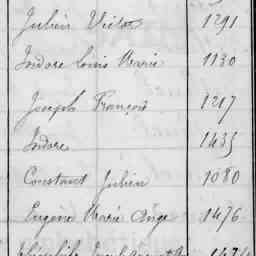 Julien Victor 1291
Isidore Louis Marie 1130
Joseph François 1217
Isidore 1435
Constant Julien 1080
Eugène Marie Ange 1476